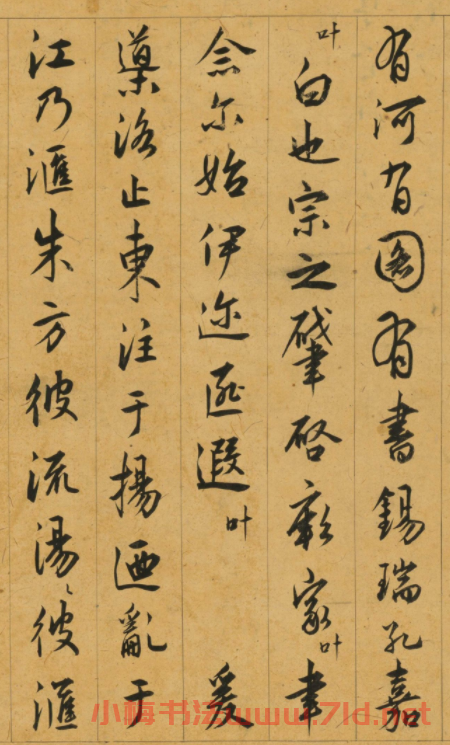 有河有圖有書錫瑞孔嘉
叶白也宗之肇啓厥家叶聿
念尔始伊迩匪遐叶爰
導洛止東注于揚迺亂于
江乃滙朱方彼流湯〻彼滙
小梅书法www.7ld.net